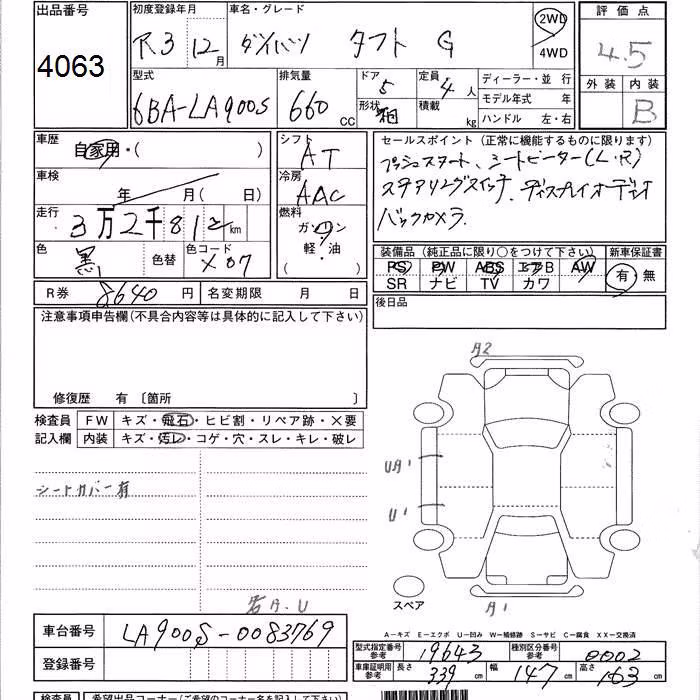 出品番号 4063
初度登録年月 R3 12月
車名・グレード ダイハツ タフト G
2WD
4WD
評価点 4.5
外装 内装 B
型式 6BA-LA900S
排気量 660 CC
ドア 5
形状 箱
定員 4人
積載 kg
ディーラー・並行
モデル年式 年
ハンドル 左・右
車歴 自家用・( )
シフト AT
車検 年 月( 日)
冷房 AAC
走行 3万2千812km
燃料 ガソリン 軽・油 ( )
色 黒 色替
色コード X07
R券 8640円
名変期限 月 日
セールスポイント(正常に機能するものに限ります)
プッシュスタート、シートヒーター(L・R)
ステアリングスイッチ、ディスプレイオーディオ
バックカメラ
装備品(純正品に限り○をつけて下さい)
PS PW ABS エアB AW
SR ナビ TV カワ
新車保証書 有 無
後日品
注意事項申告欄(不具合内容等は具体的に記入して下さい)
修復歴 有〔箇所 〕
検査員記入欄
FW キズ・飛石・ヒビ割・リペア跡・×要
内装 キズ・汚レ・コゲ・穴・スレ・キレ・破レ
シートカバー有
若A.U
A2
UA1
U1
A1
スペア
A-キズ E-エクボ U-凹み W-補修跡 S-サビ C-腐食 XX-交換済
車台番号 LA900S-0083769
登録番号
型式指定番号参考 19643
種別区分番号参考 0002
車庫証明用参考 長さ 339cm 幅 147cm 高さ 163cm
検査員
希望出品コーナー(ご希望のコーナー名を記入下さい)